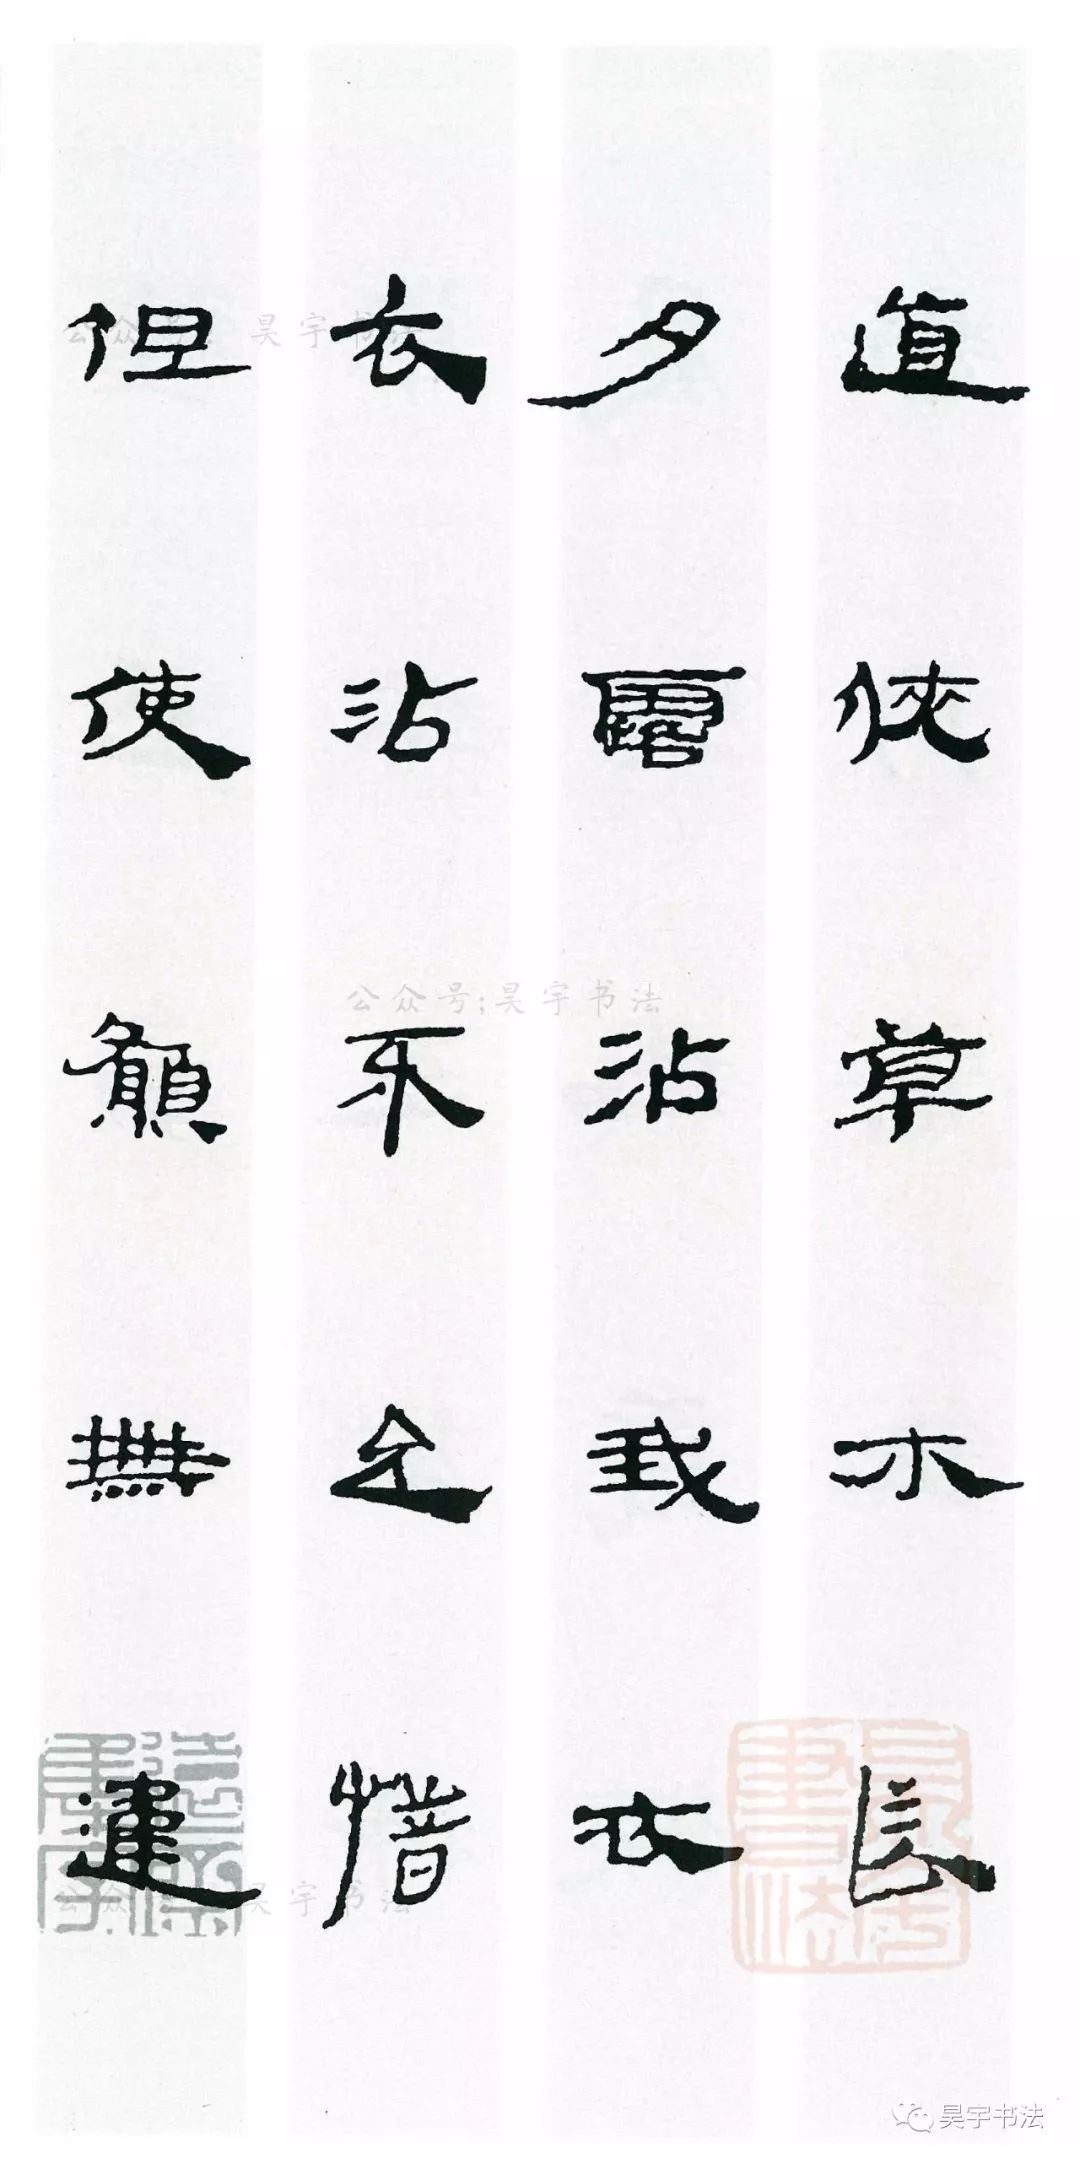 道狹草木長
夕露沾我衣
衣沾不足惜
但使願無違
公众号:昊宇书法
公众号:昊宇书法
公众号:昊宇书法
昊宇书法